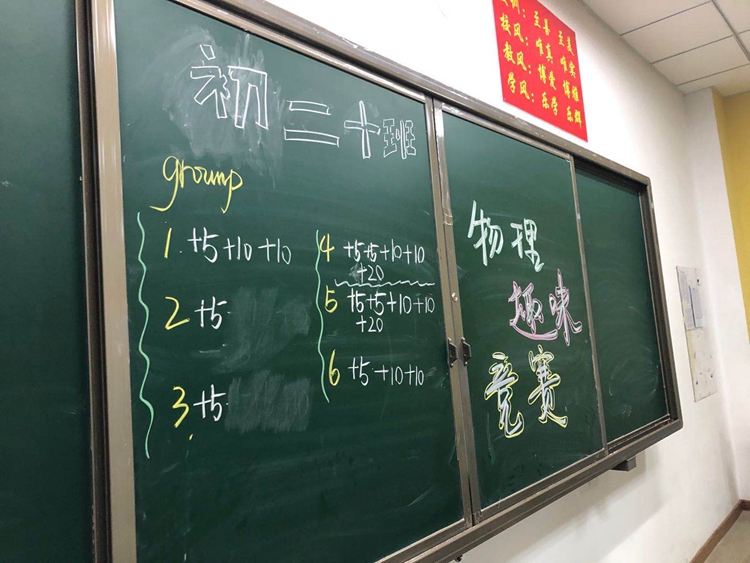 初二十班
group
1 +5+10+10
2 +5
3 +5
4 +5+5+10+10
+20
5 +5+5+10+10
+20
6 +5+10+10
物理
趣味
竞赛
训：至善 至美
校风：唯真 唯实
教风：博爱 博雅
学风：乐学 乐群